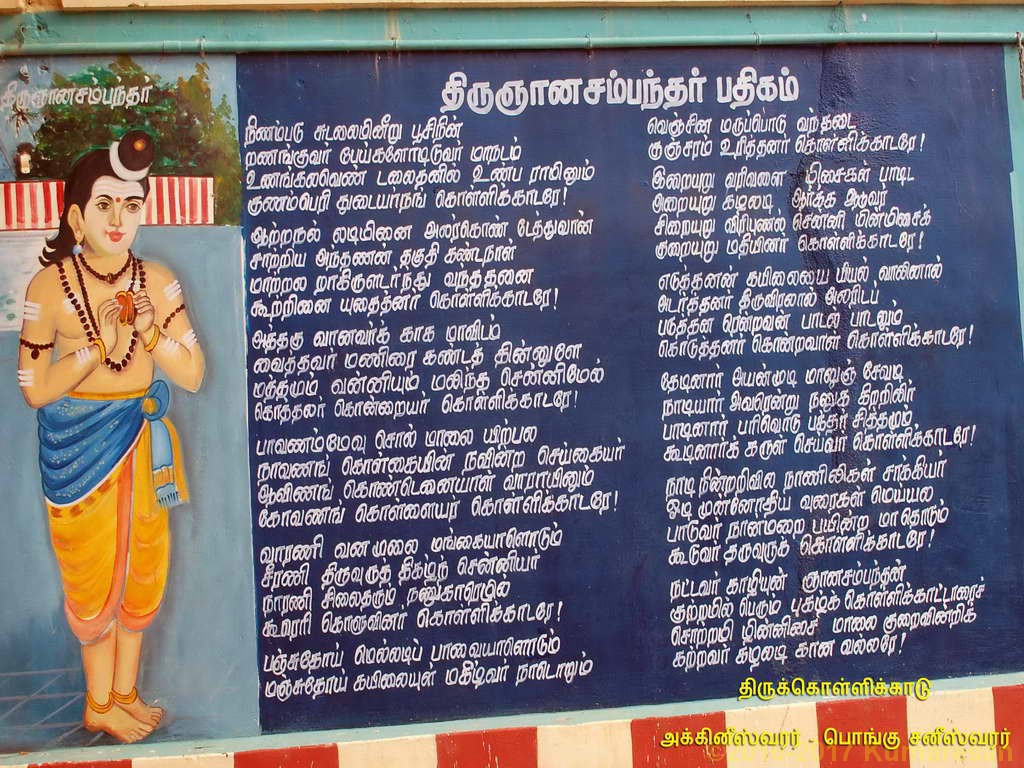 திருஞானசம்பந்தர் பதிகம்
திருஞானசம்பந்தர்
நிணம்படு சுடலையினீறு பூசிநின்
றணங்குவர் பேய்களோடிடுவர் மாநடம்
உணங்கலவெண் டலைதனில் உண்ப ராயினும்
குணம்பெரி துடையர்நங் கொள்ளிக்காடரே!
ஆற்றநல் லடியினை அலர்கொண் டேத்துவான்
சாற்றிய அந்தணன் தகுதி கண்டநாள்
மாற்றல ராகியடர்ந்து வந்தணை
கூற்றினை யுதைத்னர் கொள்ளிக்காடரே!
அத்தகு வானவர்க் காக மாவிடம்
வைத்தவர் மணிரை கண்டத் தின்னுளே
மத்தமும் வன்னியும் மலிந்த சென்னிமேல்
கொத்தலர் கொன்றையர் கொள்ளிக்காடரே!
பாவணம்மேவு சொல் மாலை யிற்பல
நாவணங் கொள்கையின் நவின்ற செய்கையர்
ஆவிணங் கொண்டெனையாள் வாராயினும்
கோவணங் கொள்ளையர் கொள்ளிக்காடரே!
வாரணி வனமுலை மங்கையாளொடும்
சீரணி திருவுருத் திகழ்ந் சென்னியர்
நாரணி சிலைதரும் நணுகாரெயில்
கூரெரி கொளுவினர் கொள்ளிக்காடரே!
பஞ்சுதோய் மெல்லடிப் பாவையாளொடும்
மஞ்சுதோய் கயிலையுள் மகிழ்வர் நாடொறும்
வெஞ்சின மருப்பொடு வந்தடை
குஞ்சரம் உரித்தனர் கொள்ளிக்காடரே!
இறையுறு வரிவளை யிசைகள் பாடிட
அறையுறு கழலடி ஆர்க்க ஆடுவர்
சிறையுறு விரிபுனல் சென்னி யின்மிசைக்
குறையுறு மதியினர் கொள்ளிக்காடரே!
எடுத்தனன் கயிலையை யியல் வாலினால்
அடர்த்தனர் திருவிரலால் அலரிடப்
படுத்தன ரென்றவன் பாடல் பாடலும்
கொடுத்தனர் கொன்றவாள் கொள்ளிக்காடரே!
தேடினார் அயன்முடி மாலுஞ் சேவடி
நாடியார் அவரென்று நணுக கிற்றிலர்
பாடினார் பரிவொடு பத்தர் சித்தமும்
கூடினார்க் கருள் செய்வர் கொள்ளிக்காடரே!
நாடி நின்றறிவில நாணிலிகள் சாக்கியர்
ஓடி முன்னோதிய வுரைகள் மெய்யல
பாடுவர் நான்மறை பயின்ற மாதொடும்
கூடுவர் கொள்ளிக்காடரே!
நட்டவர் காழியுன் ஞானசம்பந்தன்
குற்றமில் பெரும் புகழ்க் கொள்ளிக்காட்டாரைச்
சொற்றமி ழின்னிசை மாலை குறைவின்றிக்
கற்றவர் கழலடி காண வல்லரே!
திருக்கொள்ளிக்காடு
அக்கினீஸ்வரர் - பொங்கு சனீஸ்வரர்